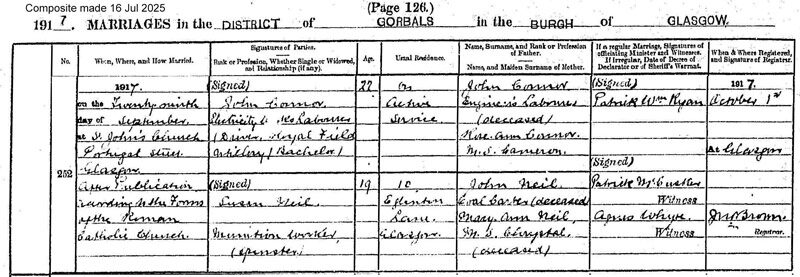 Composite made 16 Jul 2025
(Page 126.)
1917. MARRIAGES in the DISTRICT of GORBALS in the BURGH of GLASGOW.
No.
When, Where, and How Married.
Signatures of Parties.
Rank or Profession, Whether Single or Widowed, and Relationship (if any).
Age.
Usual Residence.
Name, Surname, and Rank or Profession of Father.
Name, and Maiden Surname of Mother.
If a regular Marriage, Signatures of officiating Minister and Witnesses.
If Irregular, Date of Decree of Declarator or of Sheriff's Warrant.
When & Where Registered, and Signature of Registrar.
252
1917.
on the Twenty ninth
day of September
at St. John's Church
Portugal Street
Glasgow
After Publication
according to the Forms
of the Roman
Catholic Church
(Signed)
John Connor
Electricity Labourer
(Driver Royal Field
Artillery) (Bachelor)
(Signed)
Susan Neil
Munition Worker
(Spinster)
22
19
On
Active
Service
10
Eglinton
Lane
Glasgow
John Connor
Engineer's Labourer
(deceased)
Rose Ann Connor
M.S. Cameron
John Neil
Coal Carter (deceased)
Mary Ann Neil,
M.S. Chrystal
(deceased)
(Signed)
Patrick Wm Ryan
(Signed)
Patrick McCusker
Witness
Agnes Whyte
Witness
1917.
October 1st
At Glasgow
Jno Brown
Registrar.